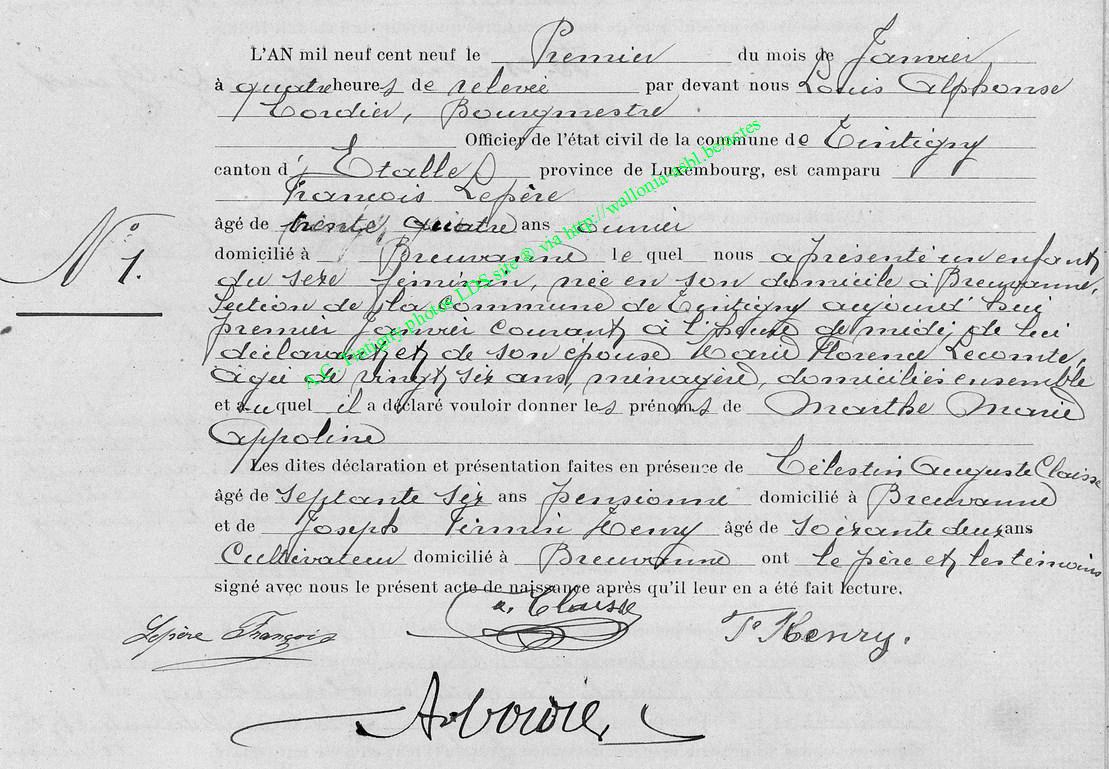 L'AN mil neuf cent neuf le Premier du mois de Janvier
à quatre heures de relevée par devant nous Louis Alphonse
Cordier, Bourgmestre
Officier de l'état civil de la commune de Tintigny
canton d' Etalle province de Luxembourg, est comparu
François Lepère
âgé de trente quatre ans
domicilié à Breuvanne le quel nous a présenté un enfant
N° 1.
du sexe féminin, née en son domicile à Breuvanne,
section de la commune de Tintigny aujourd'hui
premier Janvier courant à de midi, de lui
déclarant et de son épouse Marie Florence Lecomte,
âgée de vingt six ans, ménagère, domiciliés ensemble
et auquel il a déclaré vouloir donner les prénoms de Marthe Marie
Appoline
Les dites déclaration et présentation faites en présence de Célestin Auguste Claisse
âgé de septante six ans pensionné domicilié à Breuvanne
et de Joseph Firmin Henry âgé de soixante deux ans
Cultivateur domicilié à Breuvanne ont le père et les témoins
signé avec nous le présent acte de naissance après qu'il leur en a été fait lecture.
a. Claisse
Lepère François
Henry.
A.C. Tintigny photos LDS site ® via http://wallonia-asbl.be/actes